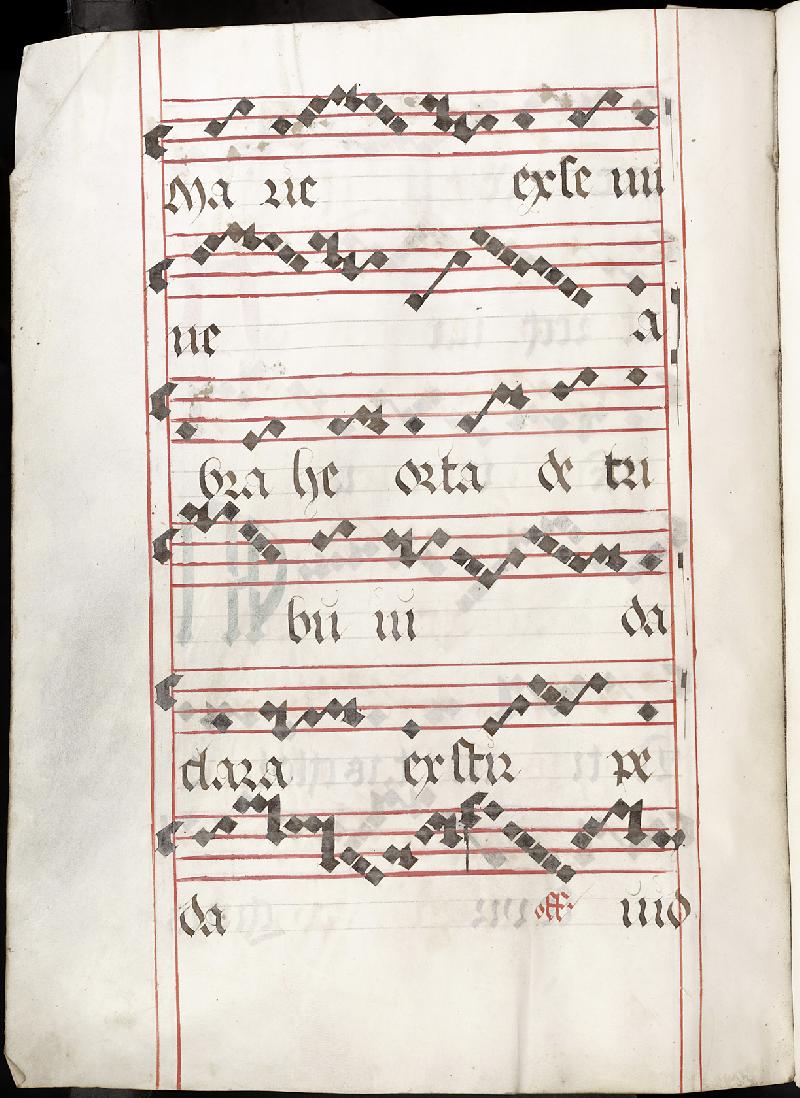 Ma rie exse mi
ne a
bra he orta de tri
bu iu da
clara exstir pe
da off. iud